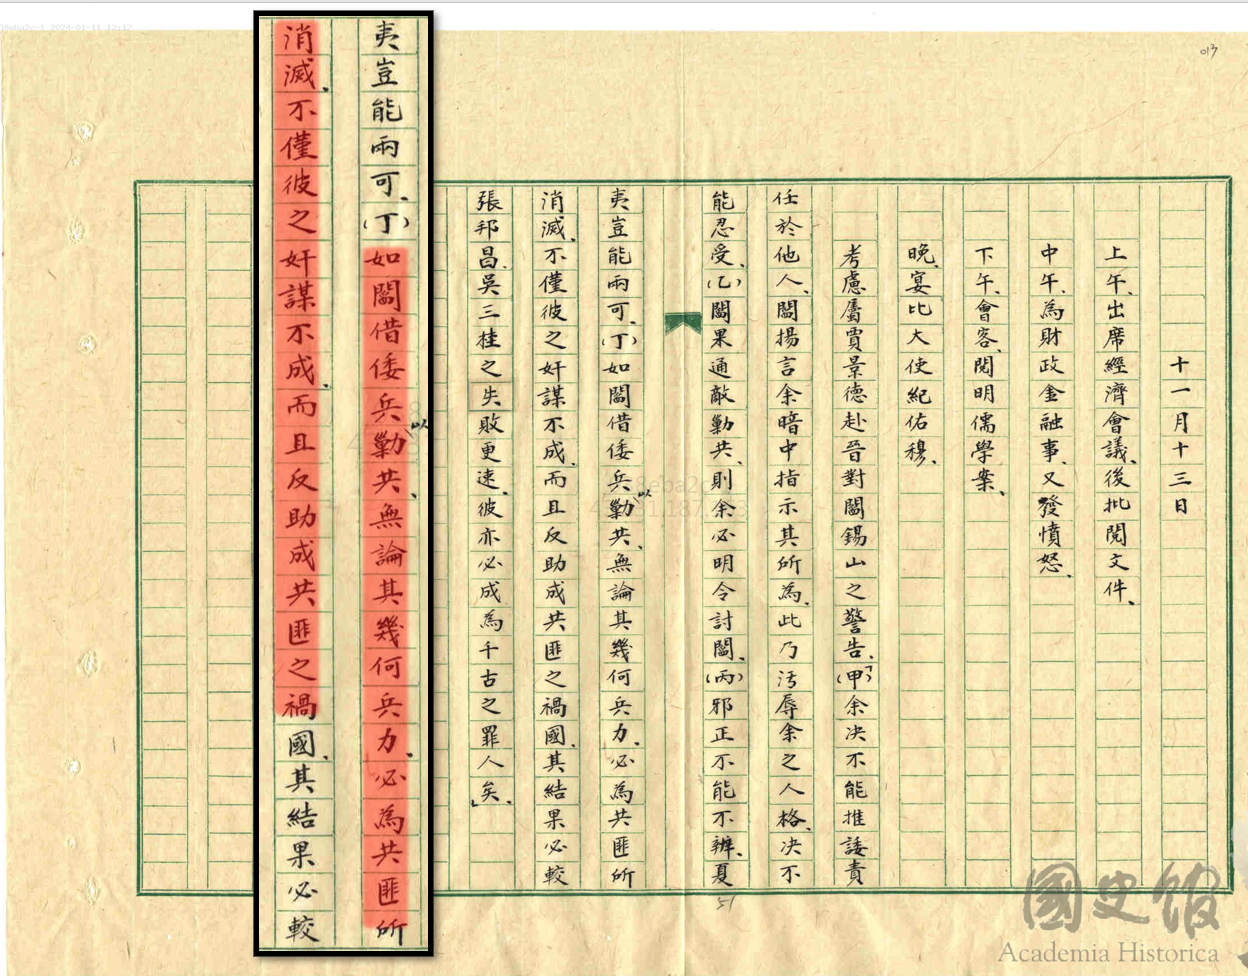 013
十一月十三日
上午、出席經濟會議、後批閱文件、
中午、為財政金融事、又發憤怒、
下午、會客、閱明儒學案、
晚、宴比大使紀佑穆、
考慮屬賈景德赴晉對閻錫山之警告、「(甲)余決不能推諉責
任於他人、閻揚言余暗中指示其所為、此乃污辱余之人格、決不
能忍受、(乙)閻果通敵勦共、則余必明令討閻、(丙)邪正不能不辨、夏
夷豈能兩可、(丁)如閻借倭兵以勦共、無論其幾何兵力、必為共匪所
消滅、不僅彼之奸謀不成、而且反助成共匪之禍國、其結果必較
張邦昌、吳三桂之失敗更速、彼亦必成為千古之罪人矣、」
51
夷豈能兩可、(丁)如閻借倭兵以勦共、無論其幾何兵力、必為共匪所
消滅、不僅彼之奸謀不成、而且反助成共匪之禍國、其結果必較
國史館
Academia Historica